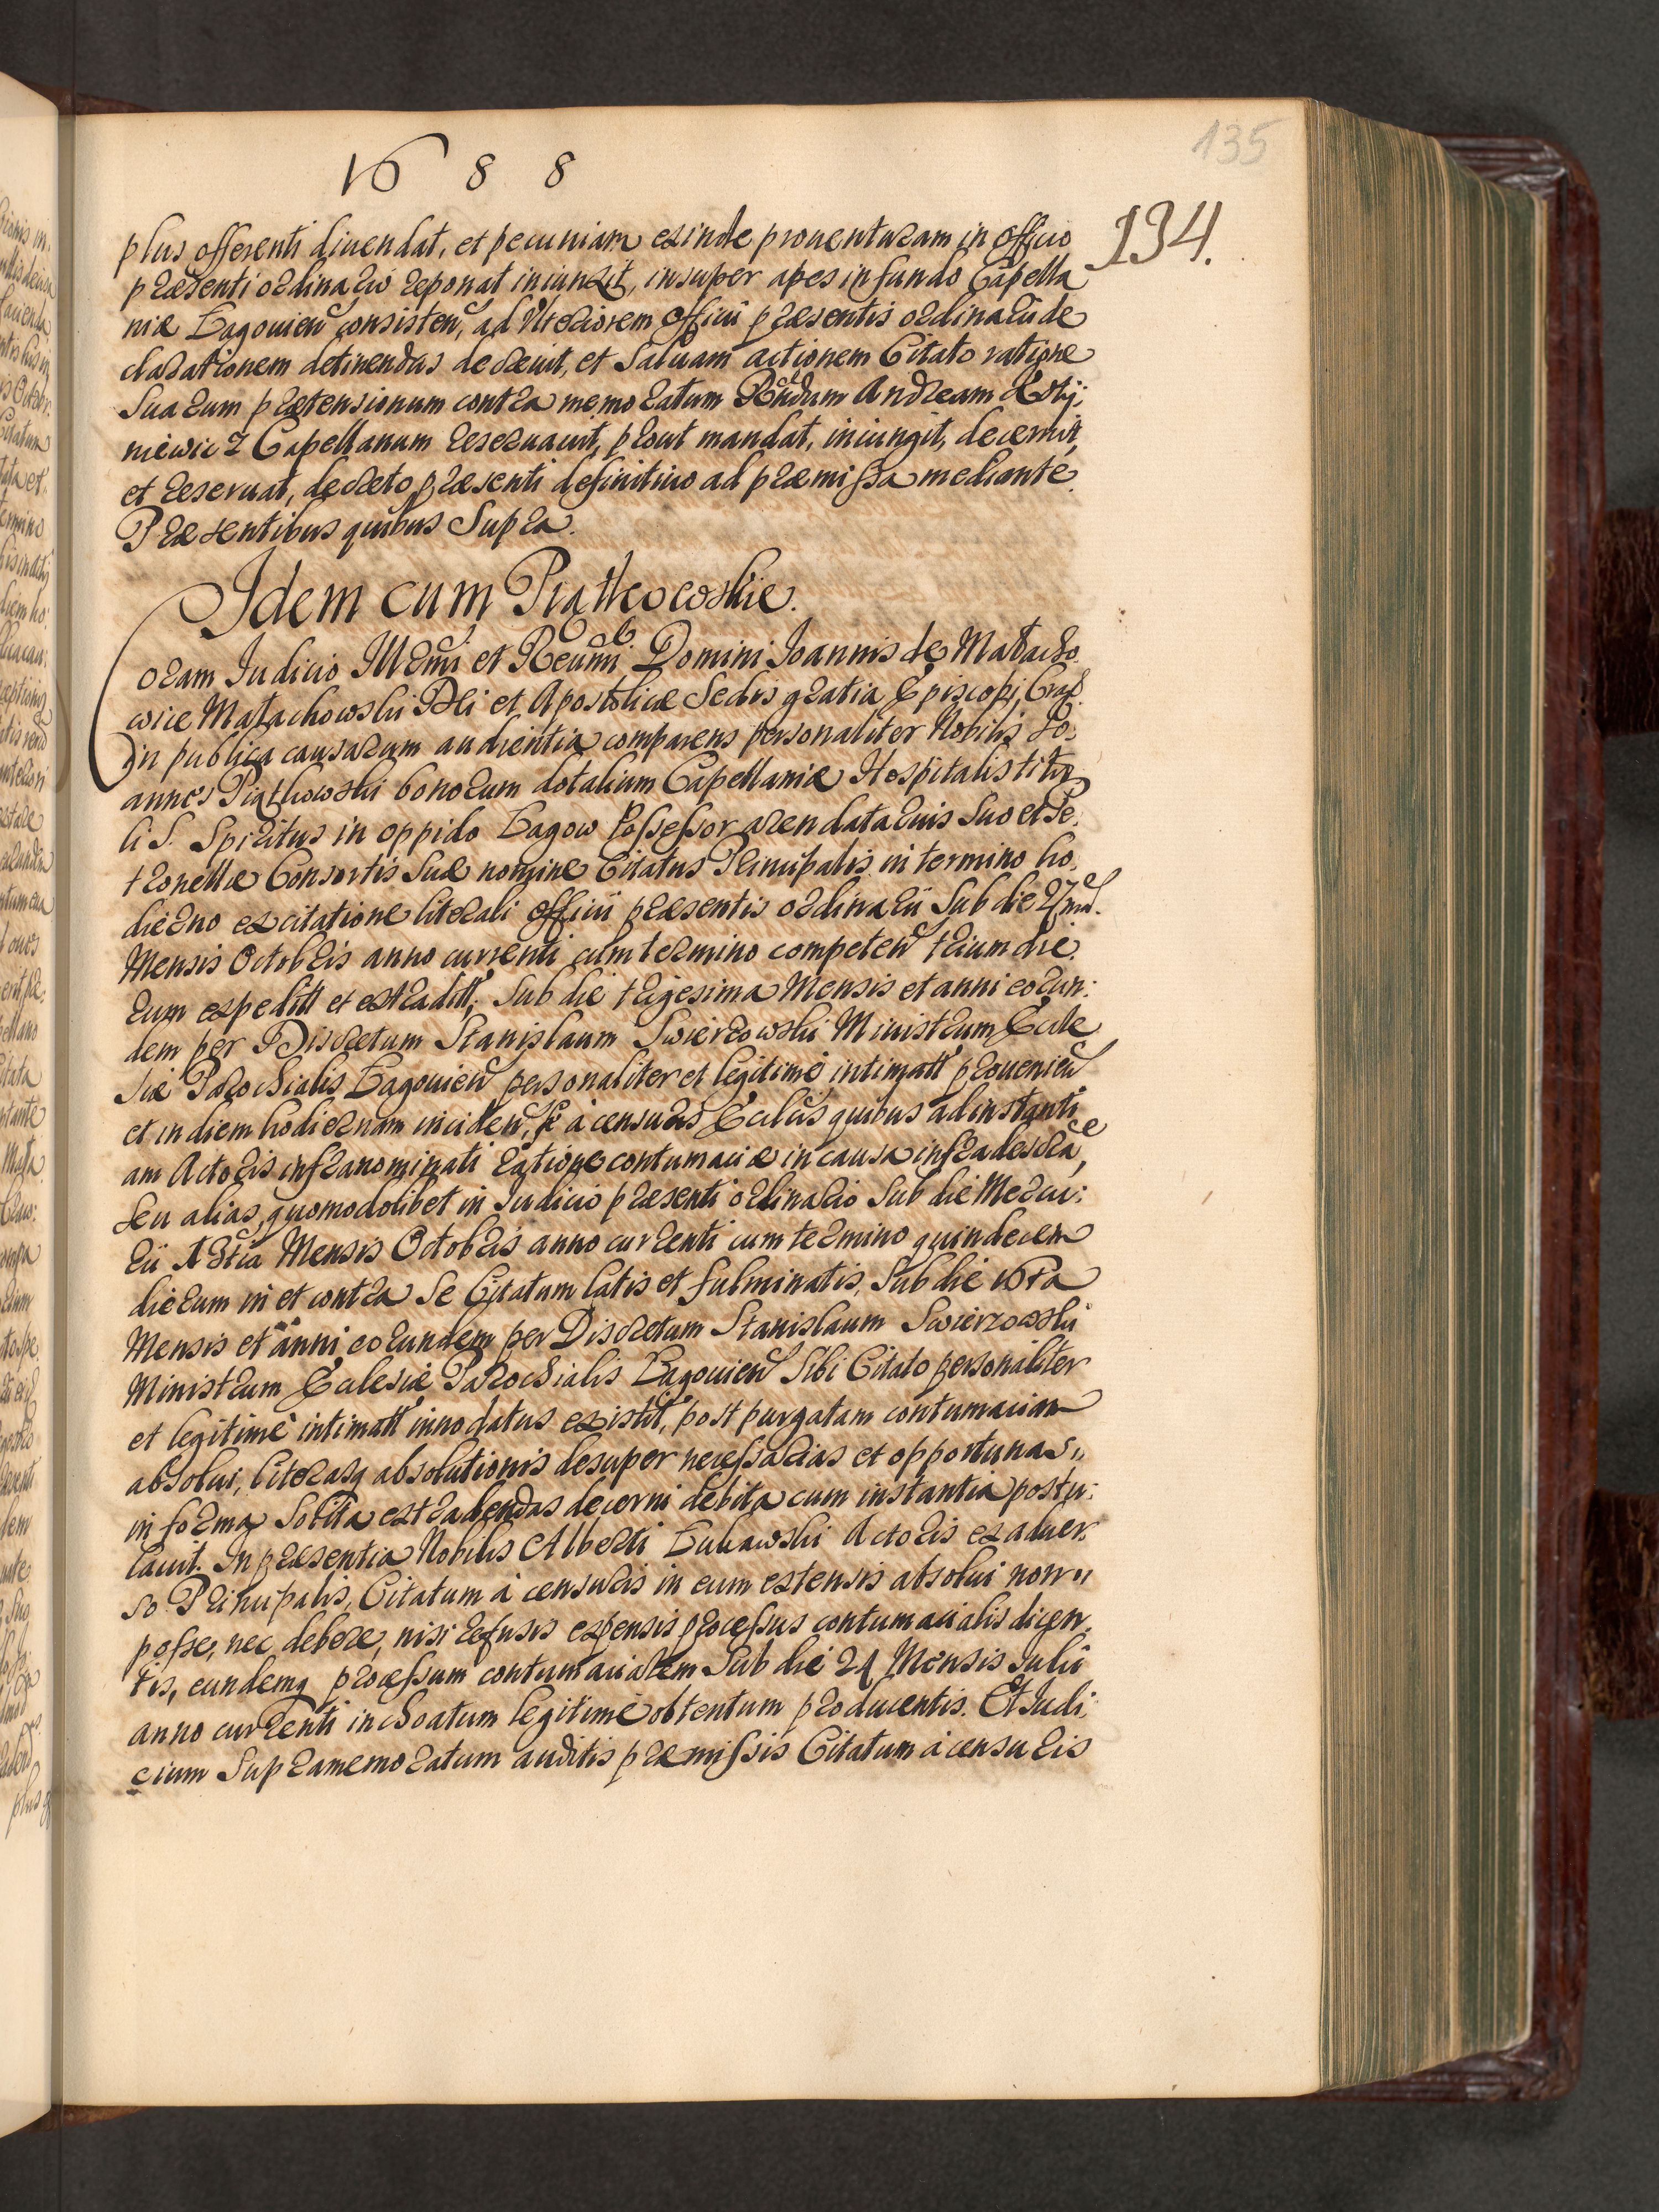 135
1688
134.
plus offerenti diuendat, et pecuniam exinde prouenturam in officio
præsenti ordinario reponat iniunxit, insuper apes in fundo Capella
niæ Łagouien consisten, ad Vlteriorem officii præsentis ordinarii de
clarationem detinendas decreuit, et Saluam actionem Citato ratione
Suarum prætensionum contra memoratum Rndum Andream
niewicz Capellanum reseruauit, prout mandat, iniungit, decernit,
et reseruat, decreto præsenti definitiuo ad præmissa mediante.
Præsentibus quibus Supra.
Idem cum Piątkowskie.
Coram Iudicio Illmi et Reumi Domini Ioannis de Małacho
wice Małachowski Dei et Apostolicæ Sedis gratia Episcopi, Crac
in publica causarum audientia comparens personaliter Nobilis Jo:
annes Piątkowski bonorum dotalium Capellaniæ Hospitalis titu
li S. Spiritus in oppido Łagow Possessor arendatarius Suo et Pe:
tronellæ Consortis Suæ nomine Citatus Principalis in termino ho:
dierno ex citatione literali officii præsentis ordinarii Sub die 27ma
Mensis Octobris anno currenti cum termino competen trium die:
rum expeditt et extraditt, Sub die trigesima Mensis et anni eorun:
dem per Discretum Stanislaum Swierzowski Ministrum Eccle
siæ Parochialis Łagouien personaliter et legitimè intimatt prouenien
et in diem hodiernam inciden, se à censuris Ecclcis quibus ad instanti
am Actoris infranominati ratione contumaciæ in causa infradescra,
seu alias, quomodolibet in Iudicio præsenti ordinario Sub die Mercu:
rii Mensis Octobris anno currenti cum termino quindecem
dierum in et contra Se Citatum latis et fulminatis, Sub die 16ta
Mensis et anni eorundem per Discretum Stanislaum Swierzowski
Ministrum Ecclesiæ Parochialis Łagouien Sibi Citato personaliter
et legitimè intimatt innodatus existit, post purgatam contumaciam
absolui, literasq absolutionis desuper necessarias et opportunas,,
in forma Solita extradendas decerni debita cum instantia postu:
lauit. In præsentia Nobilis Alberti Łukawski Actoris ex aduer:
so Principalis, Citatum à censuris in eum extensis absolui non,,
posse, nec debere, nisi refusis expensis processus contumacialis dicen:
tis, eundemq processum contumacialem Sub die 24 Mensis Julii
anno currenti inchoatum legitimè obtentum producentis. Et Iudi:
cium Supramemoratum auditis præmissis Citatum à censuris